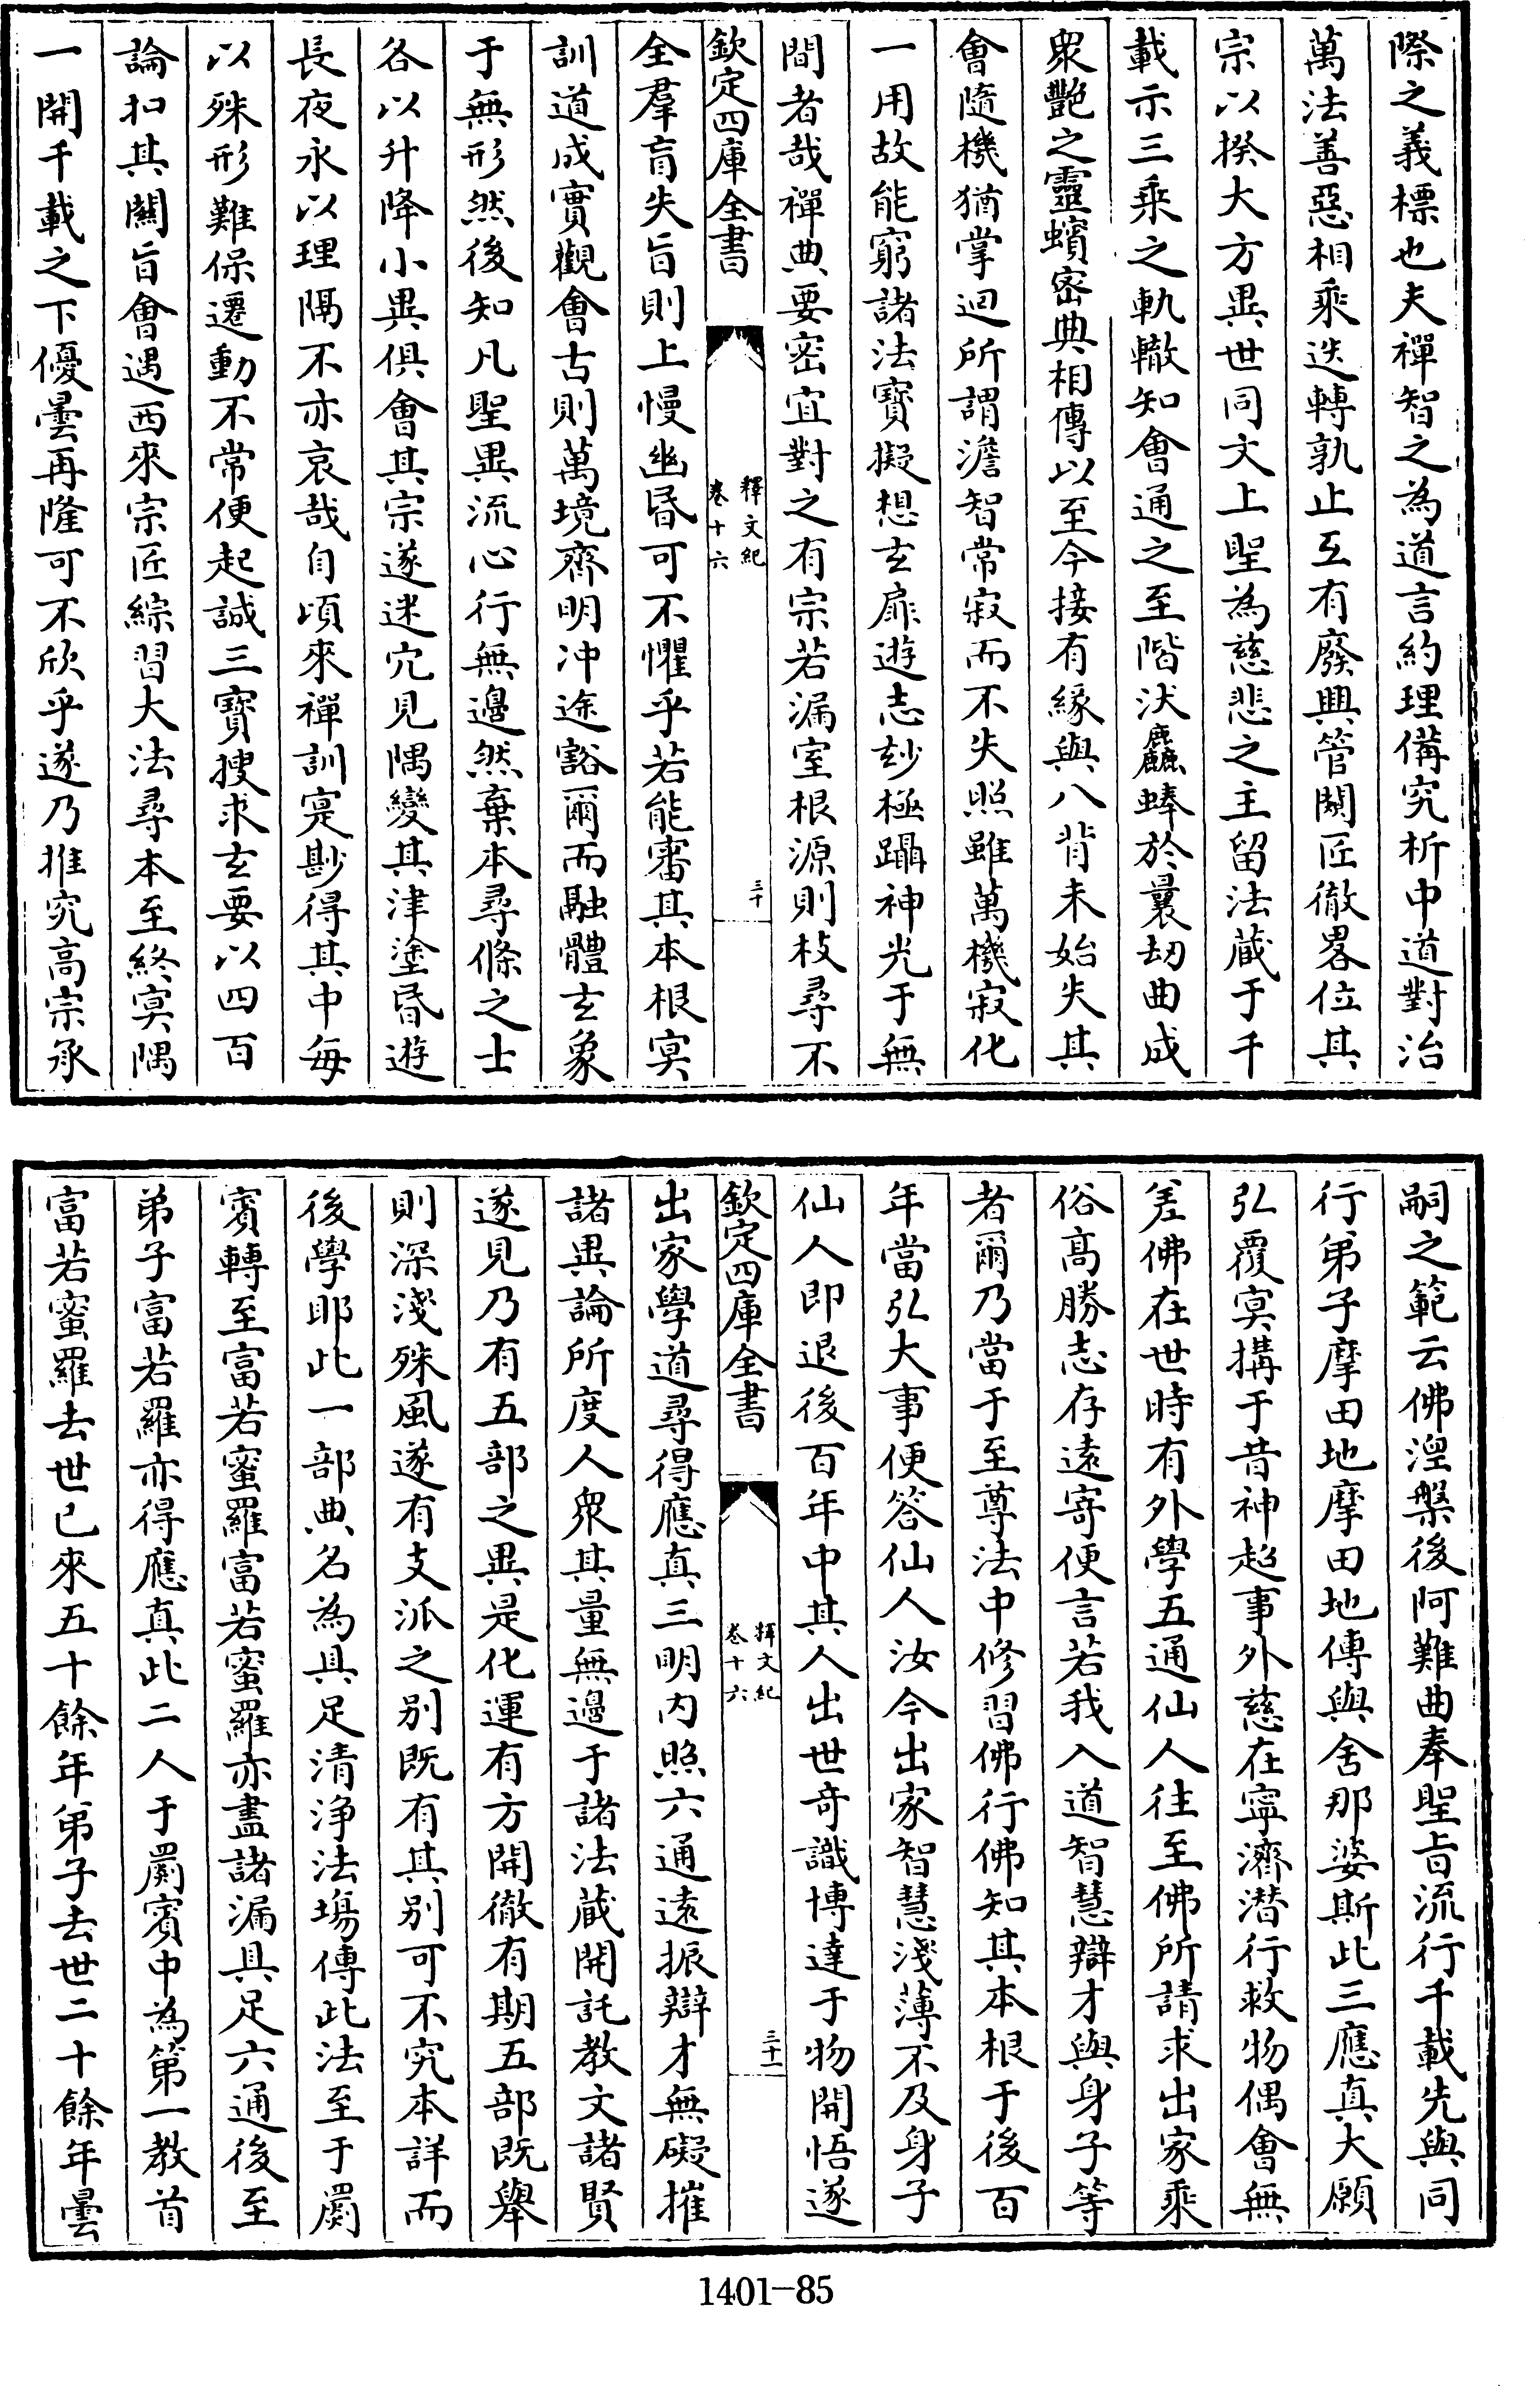 際之義標也夫禪智之為道言約理備究析中道對治
萬法善惡相乘迭轉孰止互有廢興管闚匠徹畧位其
宗以揆大方異世同文上聖為慈悲之主留法藏于千
載示三乘之軌轍知會通之至階汏麤蜯於曩刼曲成
衆艷之靈蠙密典相傳以至今接有緣與八背未始失其
會隨機猶掌迴所謂澹智常寂而不失照雖萬機寂化
一用故能窮諸法寶擬想玄扉遊志玅極躡神光于無
間者哉禪典要密宜對之有宗若漏室根源則枝尋不
欽定四庫全書
釋文紀
卷十六
三十
全羣盲失旨則上慢幽昏可不懼乎若能審其本根冥
訓道成實觀會古則萬境齊明冲途豁爾而融體玄象
于無形然後知凡聖異流心行無邊然棄本尋條之士
各以升降小異俱會其宗遂迷穴見隅變其津塗昏遊
長夜永以理隔不亦哀哉自頃來禪訓寔尠得其中每
以殊形難保遷動不常便起誠三寶搜求玄要以四百
論扣其關旨會遇西來宗匠綜習大法尋本至終冥隅
一開千載之下優曇再隆可不欣乎遂乃推究高宗承
嗣之範云佛湼槃後阿難曲奉聖旨流行千載先與同
行弟子摩田地摩田地傳與舍那婆斯此三應真大願
弘覆冥搆于昔神超事外慈在寧濟潜行救物偶會無
差佛在世時有外學五通仙人往至佛所請求出家乘
俗高勝志存遠寄便言若我入道智慧辯才與身子等
者爾乃當于至尊法中修習佛行佛知其本根于後百
年當弘大事便答仙人汝今出家智慧淺薄不及身子
仙人即退後百年中其人出世竒識博達于物開悟遂
欽定四庫全書
釋文紀
卷十六
三十一
出家學道尋得應真三明内照六通遠振辯才無礙摧
諸異論所度人衆其量無邊于諸法藏開託教文諸賢
遂見乃有五部之異是化運有方開徹有期五部既舉
則深淺殊風遂有支派之别既有其别可不究本詳而
後學耶此一部典名為具足清浄法塲傳此法至于罽
賓轉至富若蜜羅富若蜜羅亦盡諸漏具足六通後至
弟子富若羅亦得應真此二人于罽賓中為第一教首
富若蜜羅去世已來五十餘年弟子去世二十餘年曇
1401-85